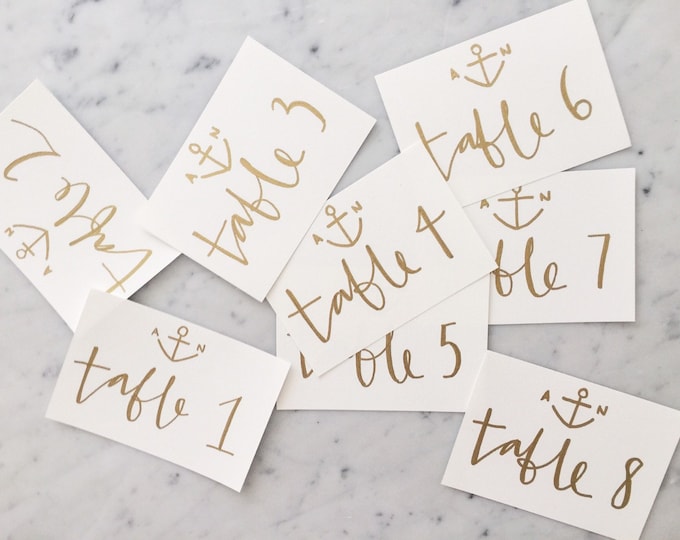 A N
table 1
A N
table 2
A N
table 3
A N
table 4
ble 5
A N
table 6
A N
ble 7
A N
table 8